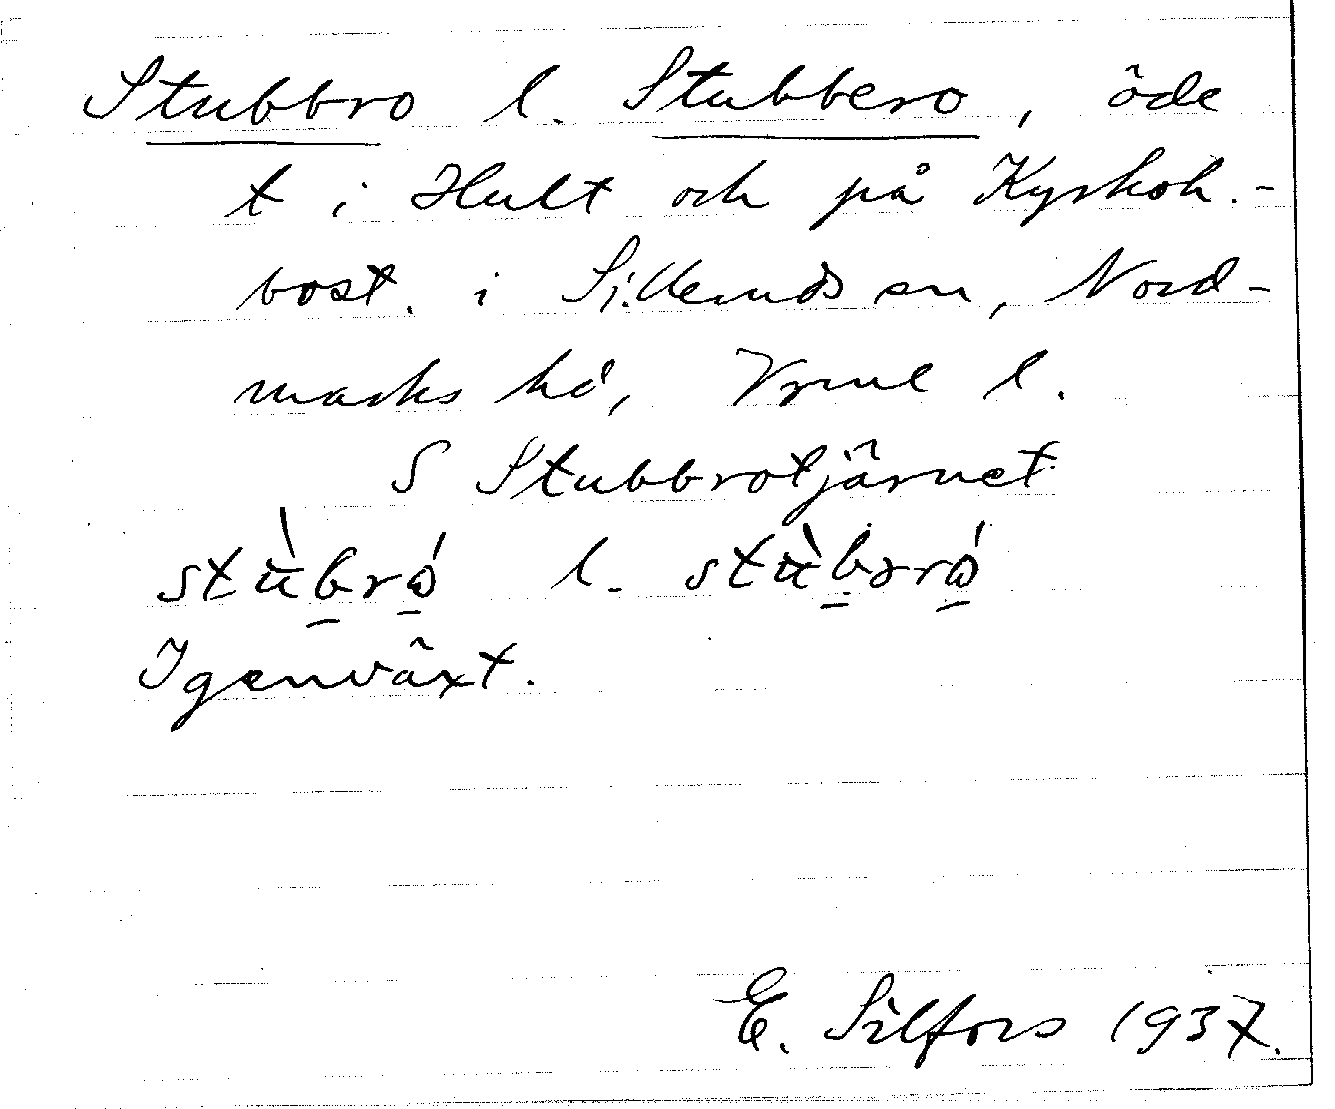 Stubbro l. Stubbero, öde
t i Hult och på Kyrkoh.-
bost. i Sillerudsn, Nord-
marks hd, Vrml l.
S Stubbrotjärnet
stùbrǿ l. stùbərǿ
Igenväxt.
E. Silfors 1937.